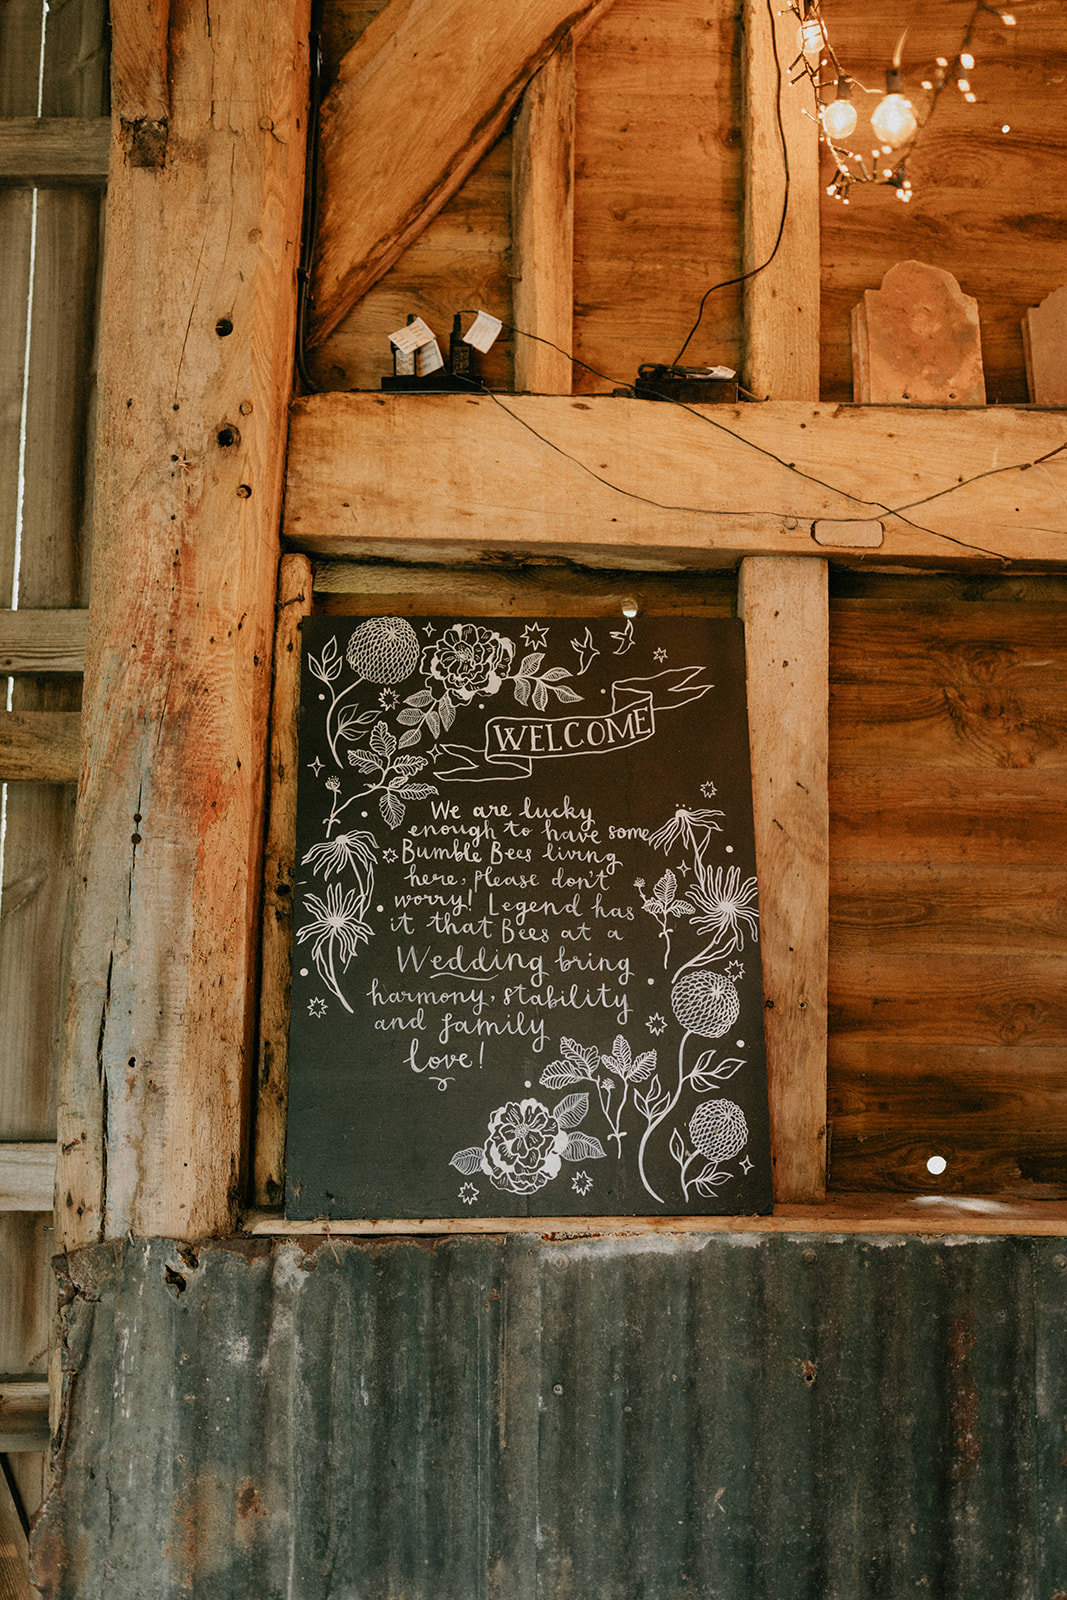 WELCOME
We are lucky
enough to have some
Bumble Bees living
here, please don't
worry! Legend has
it that Bees at a
Wedding bring
harmony, stability
and family
love!